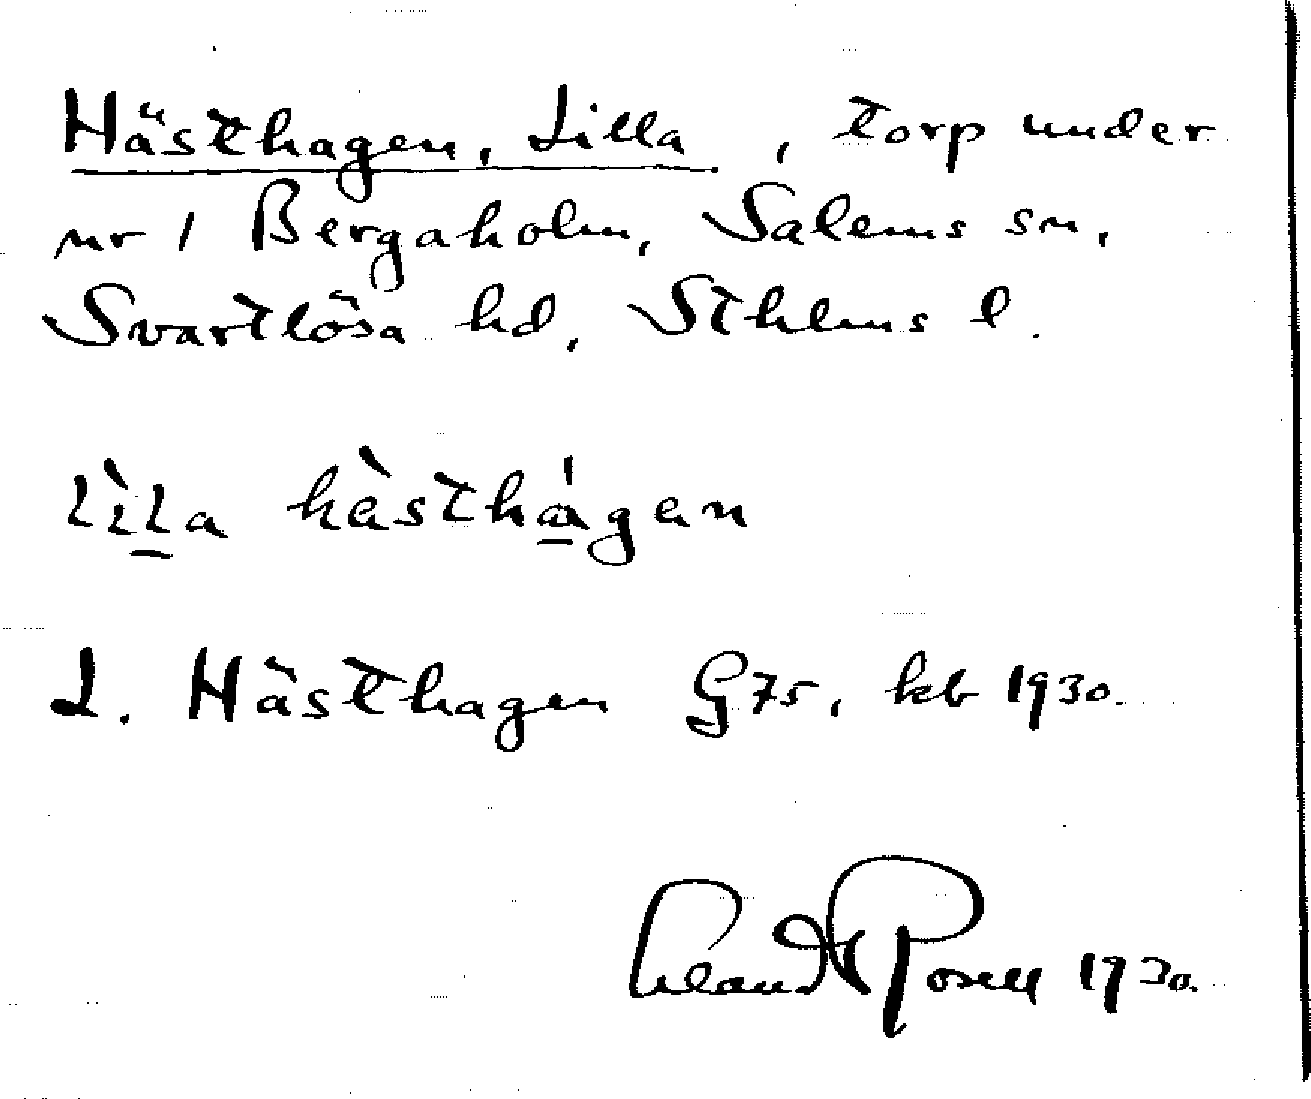 Hästhagen, Lilla, torp under
nr 1 Bergaholm, Salems sn,
Svartlösa hd, Sthlms l.
lìla hàsthágan
L. Hästhagen G75, kb 1930.
1930.